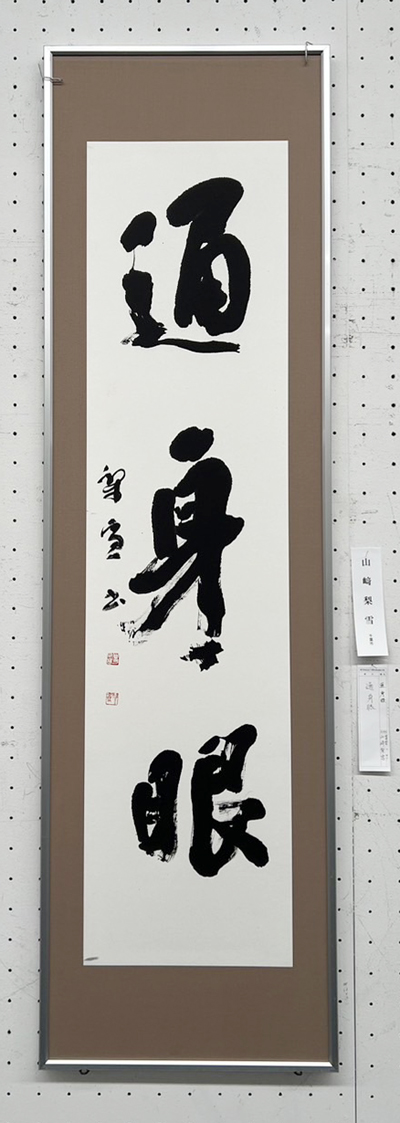 通身眼
梨雪書
山崎梨雪
通身眼